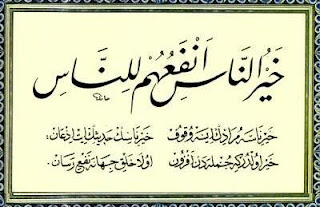 خَيْرُ النَّاسِ اَنْفَعُهُمْ لِلنَّاسِ
خير ناسه مراد ايسه وقوف خير ناسك حديثن ايت اذعان
خير اولدركه جمله دن افزون اولا خلق جهانه نفع رسان